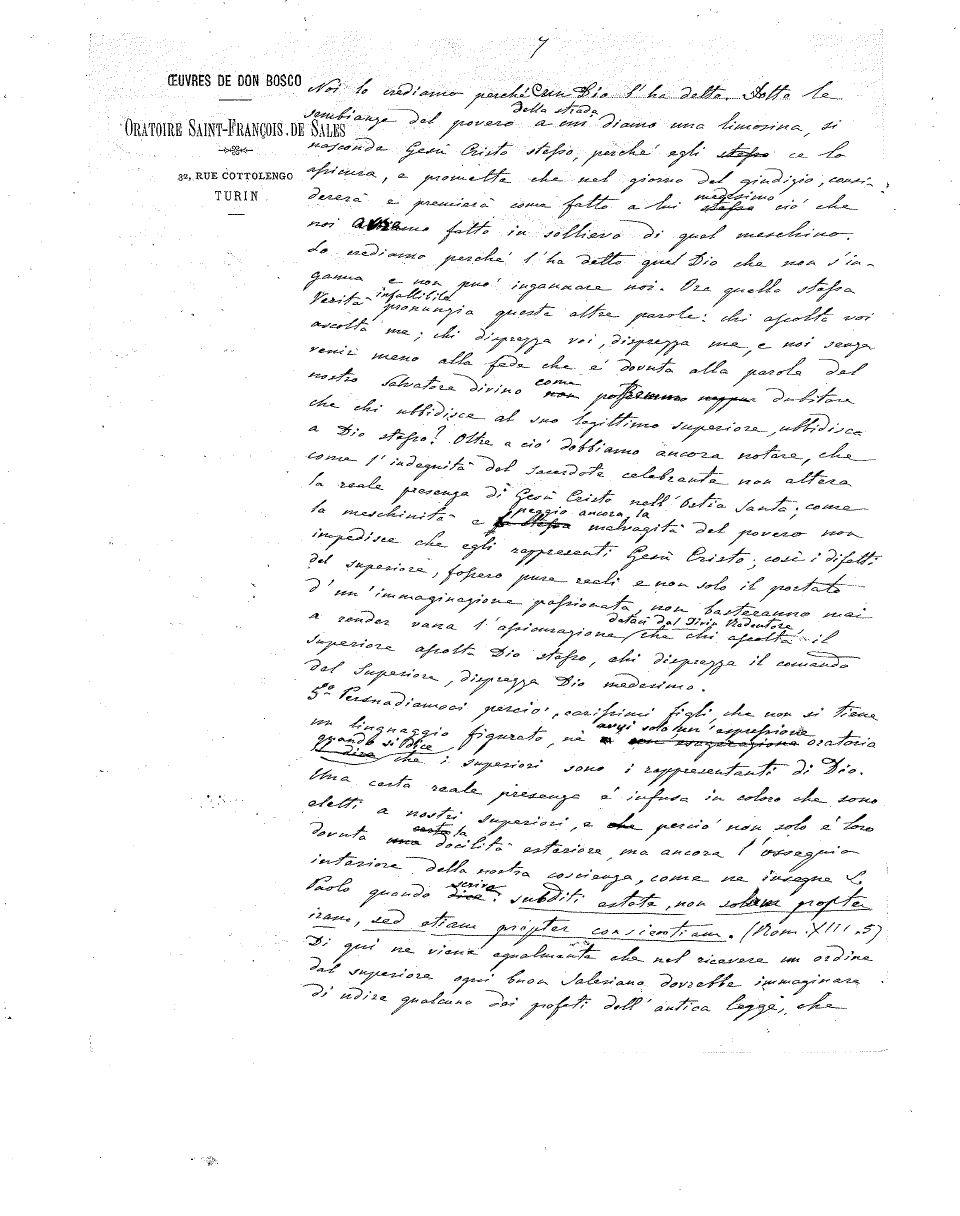 7
ŒUVRES DE DON BOSCO
ORATOIRE SAINT-FRANÇOIS DE SALES
32, RUE COTTOLENGO
TURIN
Noi lo crediamo perché un Dio l'ha detto. Sotto le
della strada
sembianze del povero a cui diamo una limosina, si
nasconde Gesù Cristo stesso, perché egli stesso ce lo
assicura, e promette che nel giorno del giudizio, consi-
medesimo
dererà e premierà come fatto a lui stesso ciò che
noi avremo fatto in sollievo di quel meschino.
Lo crediamo perché l'ha detto quel Dio che non s'in-
ganna e non può ingannare noi. Ora quella stessa
infallibile
Verità pronunzia queste altre parole: chi ascolta voi
ascolta me; chi disprezza voi, disprezza me, e noi senza
venir meno alla fede che è dovuta alla parola del
come
nostro Salvatore divino non potremmo neppur dubitare
che chi ubbidisce al suo legittimo superiore, ubbidisca
a Dio stesso? Oltre a ciò dobbiamo ancora notare, che
come l'indegnità del sacerdote celebrante non altera
la reale presenza di Gesù Cristo nell'Ostia Santa; come
peggio ancora la
la meschinità e la stessa malvagità del povero non
impedisce che egli rappresenti Gesù Cristo; così i difetti
del superiore, fossero pure reali e non solo il portato
d'un'immaginazione passionata, non basteranno mai
dataci dal Divin Redentore
a render vana l'assicurazione che chi ascolta il
superiore ascolta Dio stesso, chi disprezza il comando
del Superiore, disprezza Dio medesimo.
5° Persuadiamoci perciò, carissimi figli, che non si tiene
anzi solo un'espressione
un linguaggio figurato, nè con esagerazione oratoria
quando si dice
dire che i superiori sono i rappresentanti di Dio.
Una certa reale presenza è infusa in coloro che sono
eletti a nostri superiori, e che perciò non solo è loro
certa la
dovuta una docilità esteriore, ma ancora l'ossequio
interiore della nostra coscienza, come ne insegna S.
scrive
Paolo quando dice: subditi estote, non solum propter
iram, sed etiam propter conscientiam. (Rom. XIII. 5)
Di qui ne viene egualmente che nel ricevere un ordine
dal superiore ogni buon Salesiano dovrebbe immaginare
di udire qualcuno dei profeti dell'antica legge, che